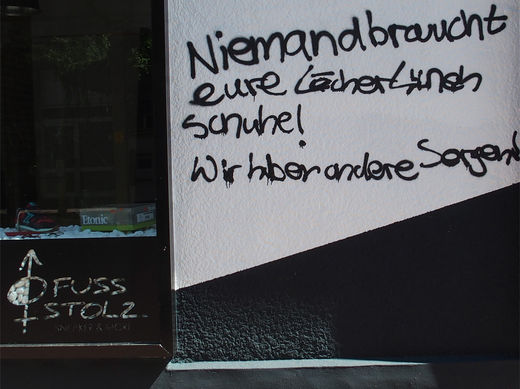 Niemand braucht
eure Lächerlichen
schuhe!
Wir haben andere Sorgen!
Etonic
FUSS
STOLZ.
SNEAKER &